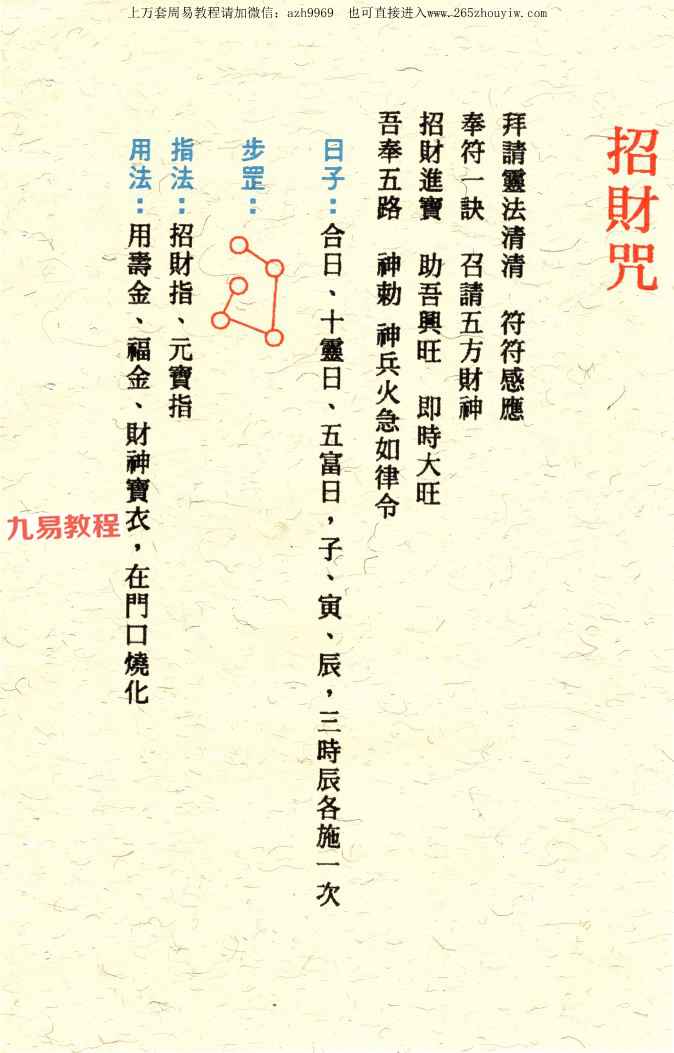 上万套周易教程请加微信：azh9969　也可直接进入www.265zhouyiw.com
招財咒
拜請靈法清清　符符感應
奉符一訣　召請五方財神
招財進寶　助吾興旺　即時大旺
吾奉五路　神勅　神兵火急如律令
日子：合日、十靈日、五富日，子、寅、辰，三時辰各施一次
步罡：
指法：招財指、元寶指
用法：用壽金、福金、財神寶衣，在門口燒化
九易教程